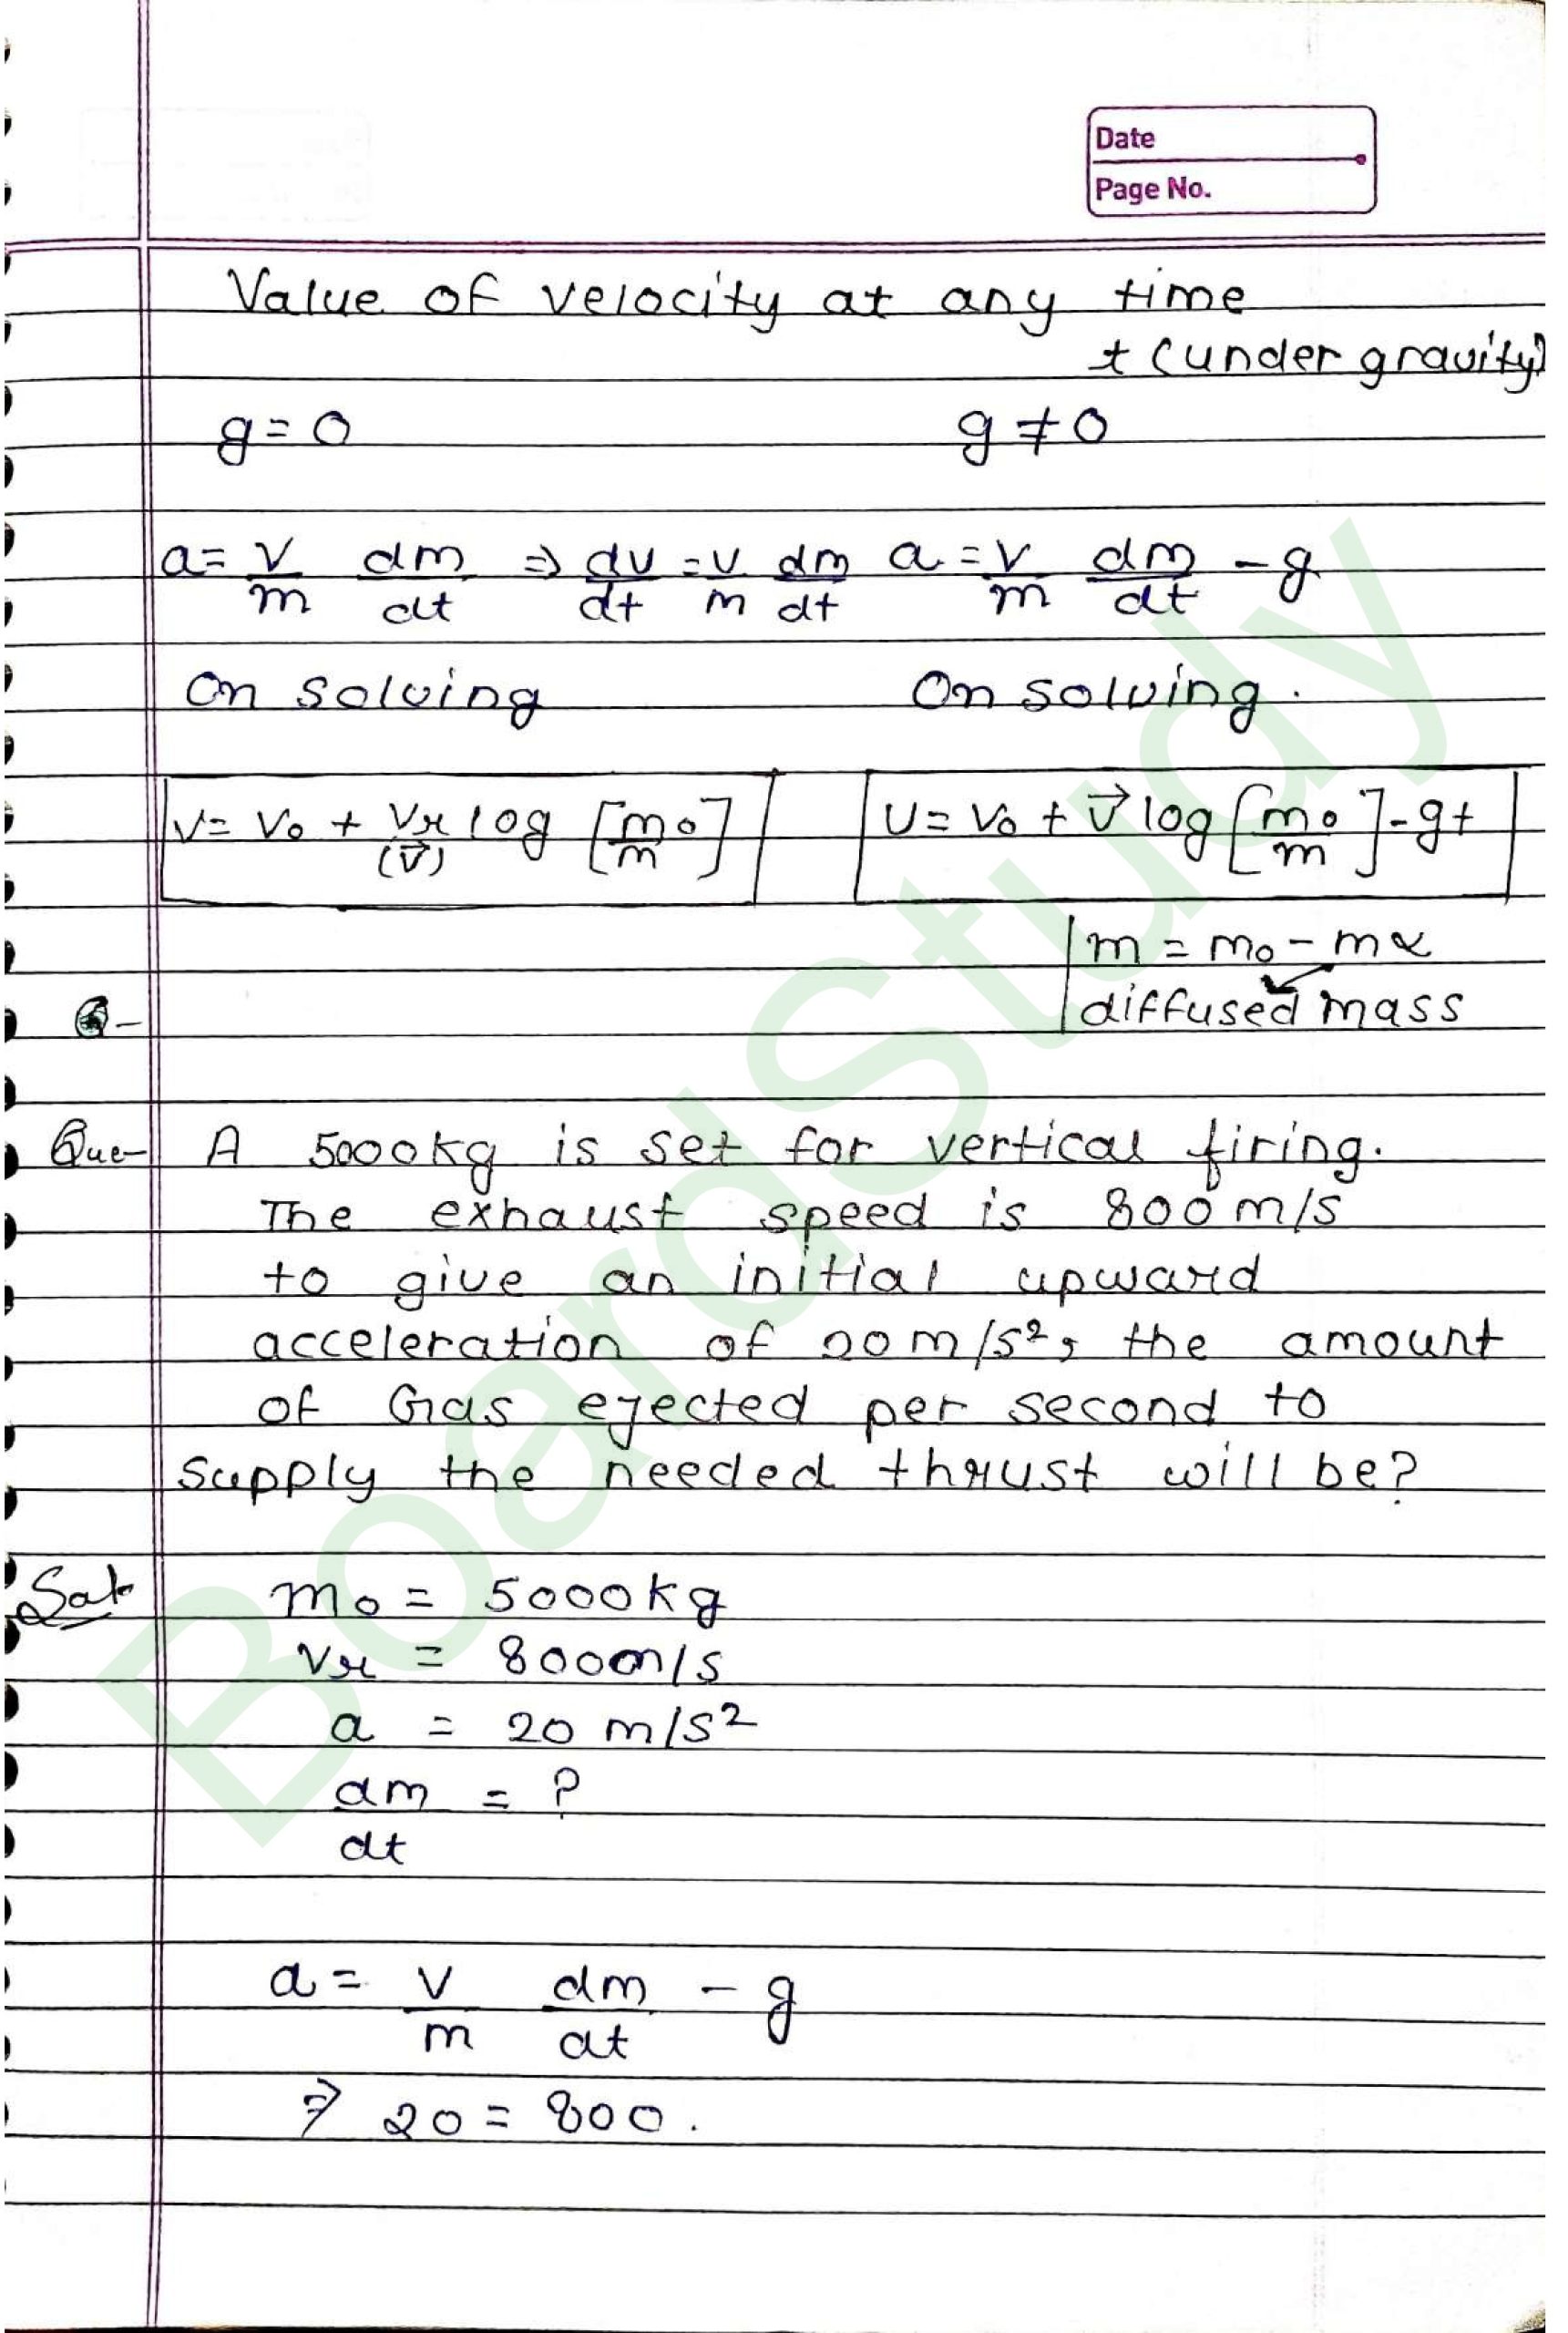 Date
Page No.
Value of velocity at any time
t (under gravity)
g = 0 g ≠ 0
a = v/m dm/dt ⇒ dv/dt = v/m dm/dt a = v/m dm/dt - g
On solving On solving.
v = v₀ + vᵣ log [m₀/m] v = v₀ + v⃗ log [m₀/m] - gt
(v⃗)
m = m₀ - mα
diffused mass
Que- A 5000kg is set for vertical firing.
The exhaust speed is 800 m/s
to give an initial upward
acceleration of 20 m/s², the amount
of Gas ejected per second to
supply the needed thrust will be?
m₀ = 5000kg
vᵣ = 800m/s
a = 20 m/s²
dm/dt = ?
a = v/m dm/dt - g
⇒ 20 = 800.
BoardStudy